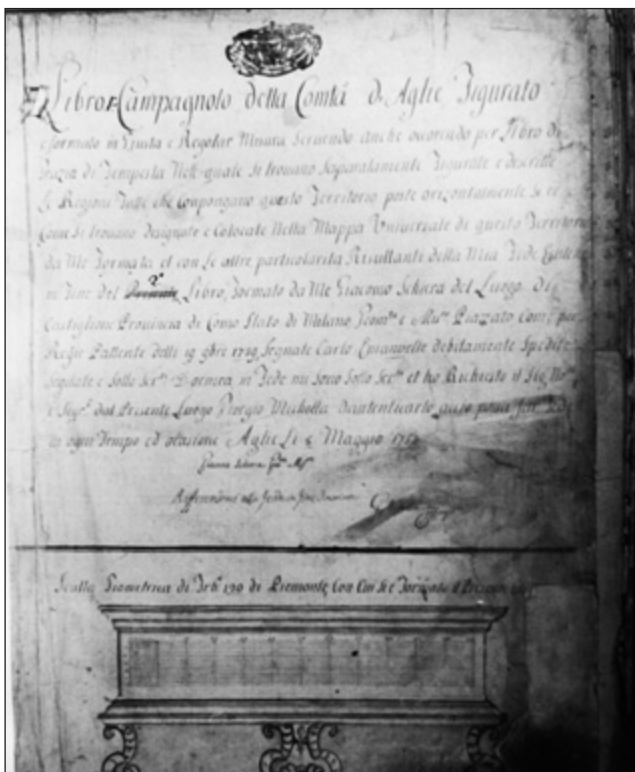 Libro Campagnolo della Com̃tà di Aglie Figurato
e formato in Giusta e Regolar Misura servendo anche ocorendo per Libro di
Grazia di Tempesta Nell quale si trovano Separatamente Figurate e descritte
Le Regioni Tutte che Compongano questo Territorio poste orizontalmente Si e
Come Si trovano Designate e Colocate Nella Mappa Universale di questo Territorio
da Me Formata et con Le altre particolarita Risultanti della Mia Fede
in Fine del Libro, Formato da Me Giacomo Schiera del Luogo Di
Castiglione Provincia di Como Stato di Milano, e Piazzato Com per
Regie Pattente delli 19 9bre 1729 Segnate Carlo Emanuelle debitamente Spedite
Sigilate e Sotto in Fede mi Sono Sotto et ho Richiesto il Sig
e dal Presente Luogo Giorgio Michella Dautenticarlo acciò possa far Fede
in ogni Tempo ed ocasione Aglie Li Maggio
Scalla Geometrica di 190 di Piemonte Con Cui Si è Formato il Presente